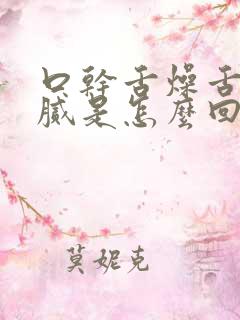 口幹舌燥舌
膩是怎麼回
莫妮克